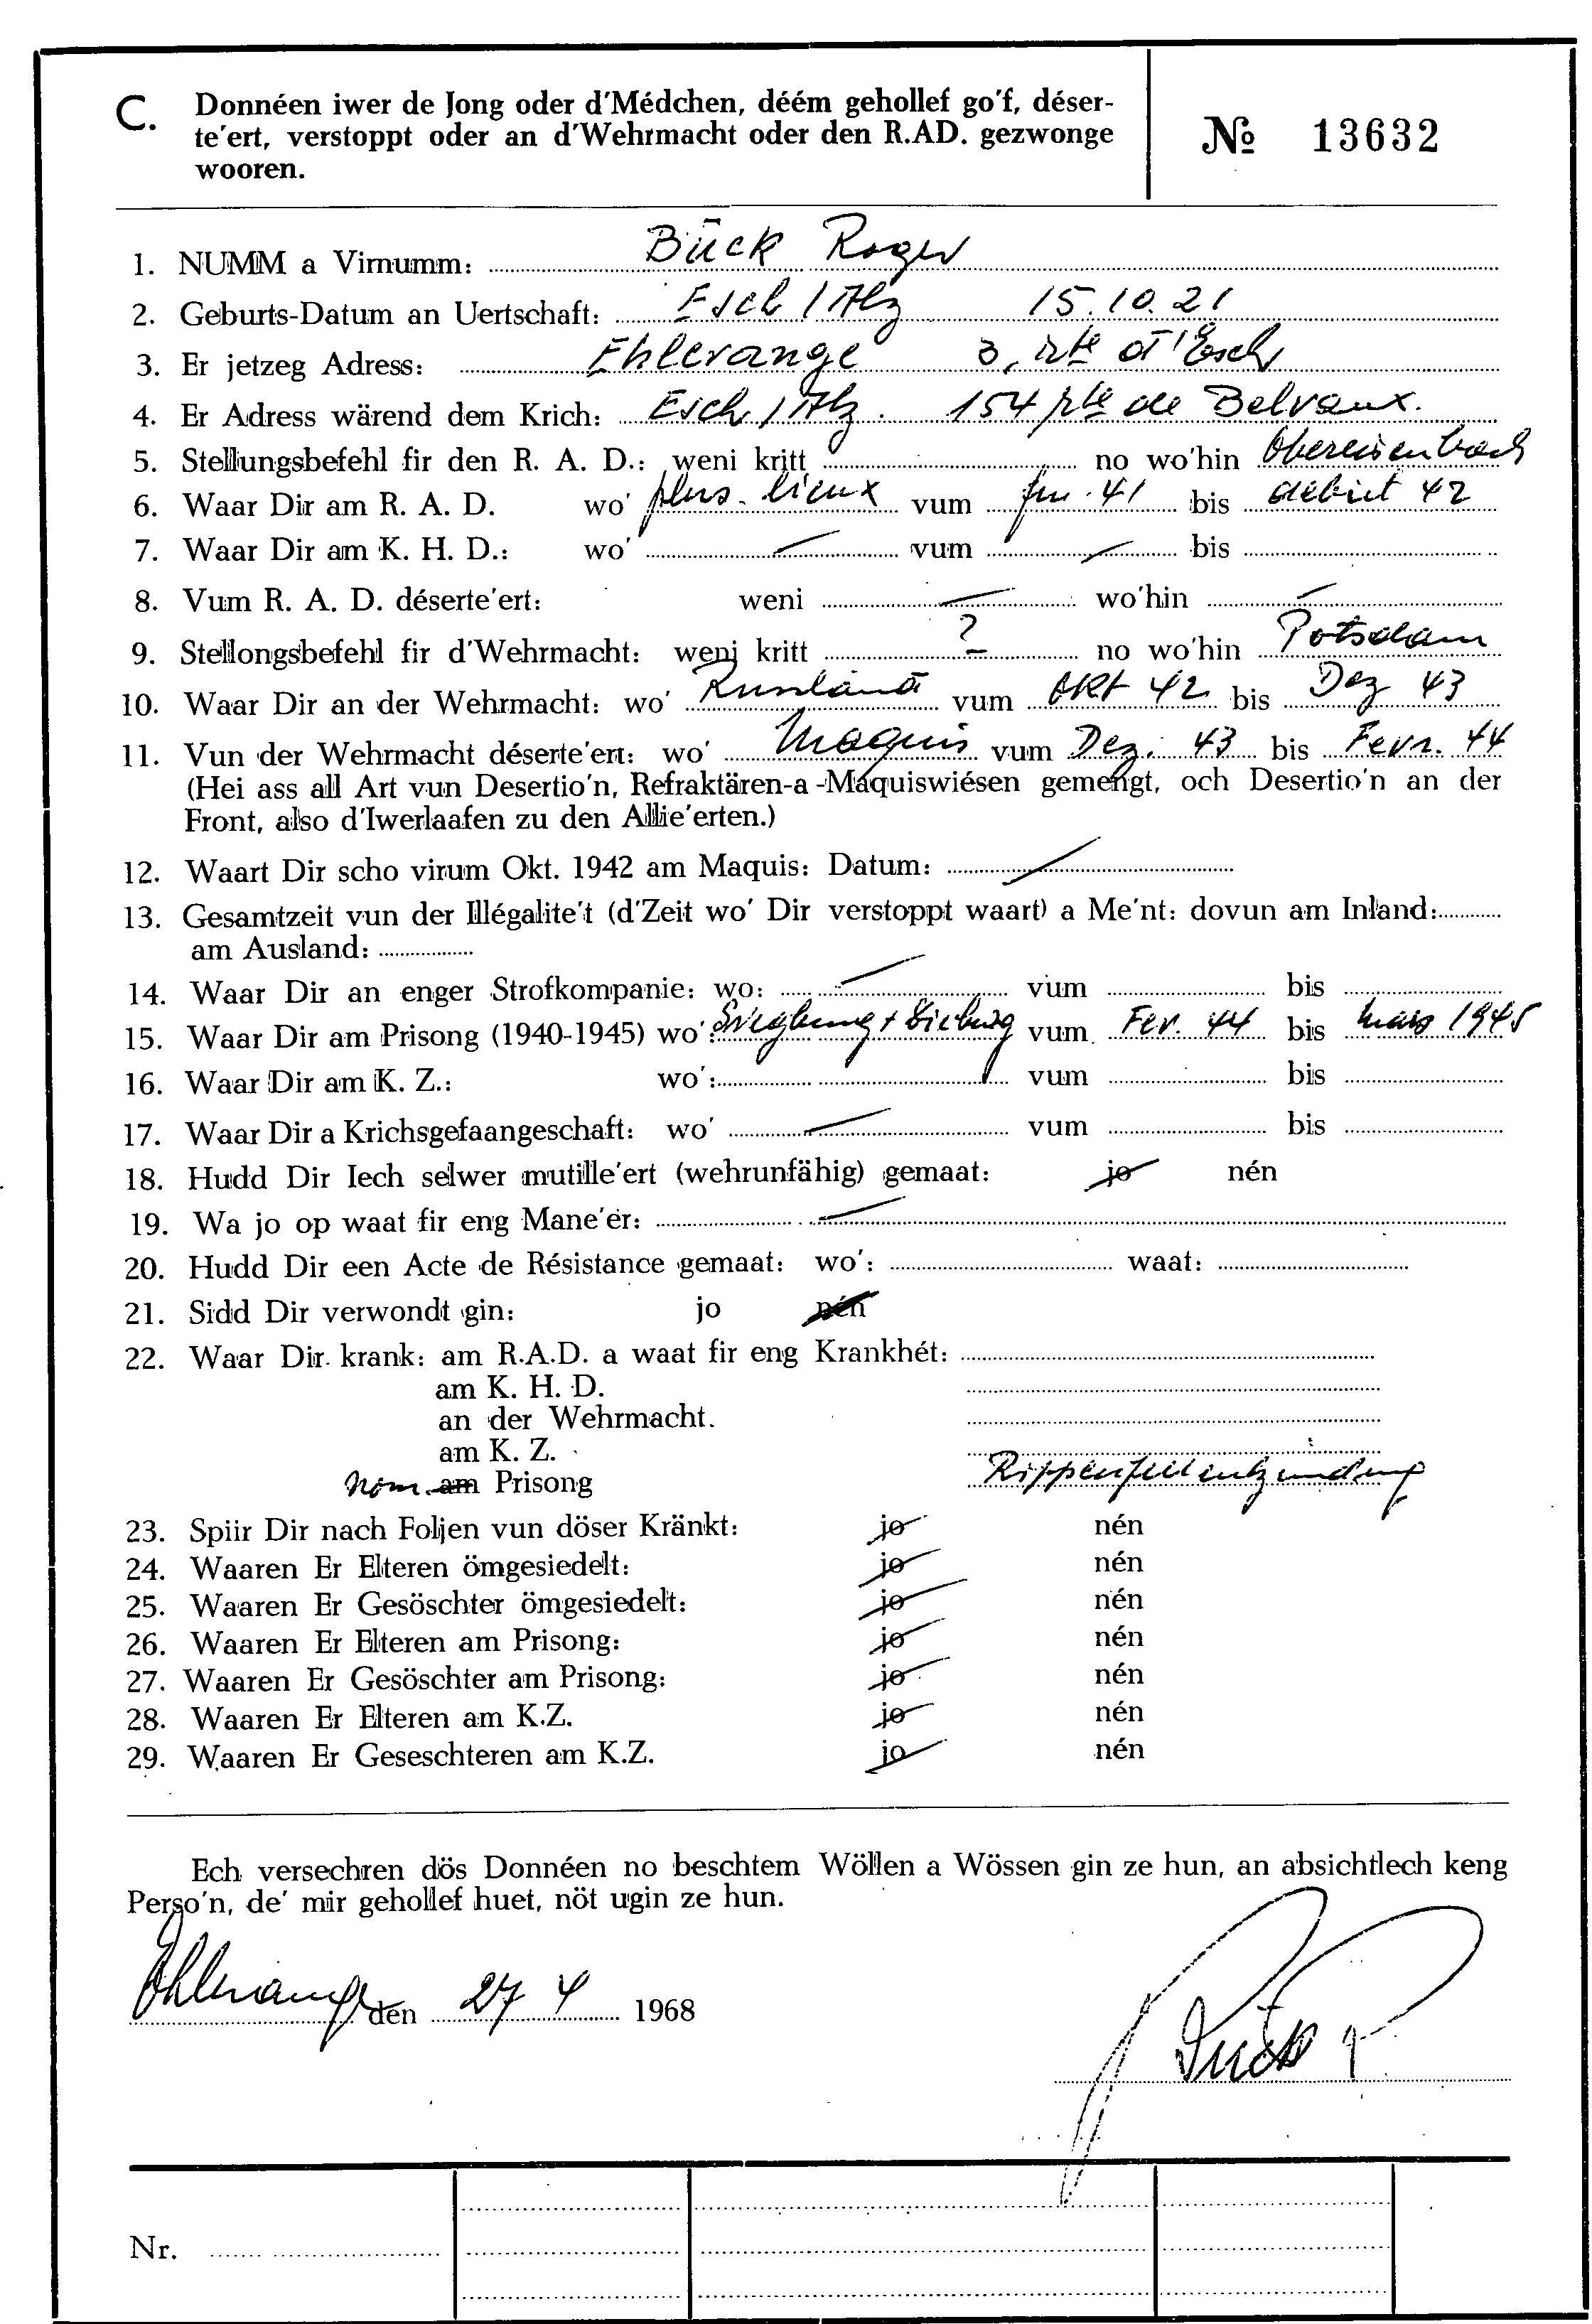 C. Donnéen iwer de Jong oder d'Médchen, déém gehollef go'f, déser-
te'ert, verstoppt oder an d'Wehrmacht oder den R.AD. gezwonge
wooren.
№ 13632
1. NUMM a Virnumm: Bück Roger
2. Geburts-Datum an Uertschaft: Esch/Alz 15.10.21
3. Er jetzeg Adress: Ehlerange 3, rte d'Esch
4. Er Adress wärend dem Krich: Esch/Alz. 154 rte de Belvaux.
5. Stellungsbefehl fir den R. A. D.: weni kritt no wo'hin Obereisenbach
6. Waar Dir am R. A. D. wo' plus. lieux vum 41 bis debut 42
7. Waar Dir am K. H. D.: wo' — vum — bis
8. Vum R. A. D. déserte'ert: weni — wo'hin —
9. Stellongsbefehl fir d'Wehrmacht: weni kritt ? no wo'hin Potsdam
10. Waar Dir an der Wehrmacht: wo' Russland vum Okt 42 bis Dez 43
11. Vun der Wehrmacht déserte'ert: wo' Maquis vum Dez. 43 bis Fevr. 44
(Hei ass all Art vun Desertio'n, Refraktären-a-Maquiswiésen gemengt, och Desertio'n an der
Front, also d'Iwerlaafen zu den Allie'erten.)
12. Waart Dir scho virum Okt. 1942 am Maquis: Datum: —
13. Gesamtzeit vun der Illégalite't (d'Zeit wo' Dir verstoppt waart) a Me'nt: dovun am Inland:
am Ausland:
14. Waar Dir an enger Strofkompanie: wo: — vum bis
15. Waar Dir am Prisong (1940-1945) wo': + Siegburg vum Fev. 44 bis mars 1945
16. Waar Dir am K. Z.: wo': vum bis
17. Waar Dir a Krichsgefaangeschaft: wo' — vum bis
18. Hudd Dir Iech selwer mutille'ert (wehrunfähig) gemaat: jo nén
19. Wa jo op waat fir eng Mane'er: —
20. Hudd Dir een Acte de Résistance gemaat: wo': waat:
21. Sidd Dir verwondt gin: jo nén
22. Waar Dir krank: am R.A.D. a waat fir eng Krankhét:
am K. H. D.
an der Wehrmacht.
am K. Z.
nom. am Prisong Rippenfellentzündung
23. Spiir Dir nach Foljen vun döser Kränkt: jo nén
24. Waaren Er Elteren ömgesiedelt: jo nén
25. Waaren Er Gesöschter ömgesiedelt: jo nén
26. Waaren Er Elteren am Prisong: jo nén
27. Waaren Er Gesöschter am Prisong: jo nén
28. Waaren Er Elteren am K.Z. jo nén
29. Waaren Er Geseschteren am K.Z. jo nén
Ech versechren dös Donnéen no beschtem Wöllen a Wössen gin ze hun, an absichtlech keng
Perso'n, de' mir gehollef huet, nöt ugin ze hun.
Ehlerange den 27 4 1968
Bück R
Nr.